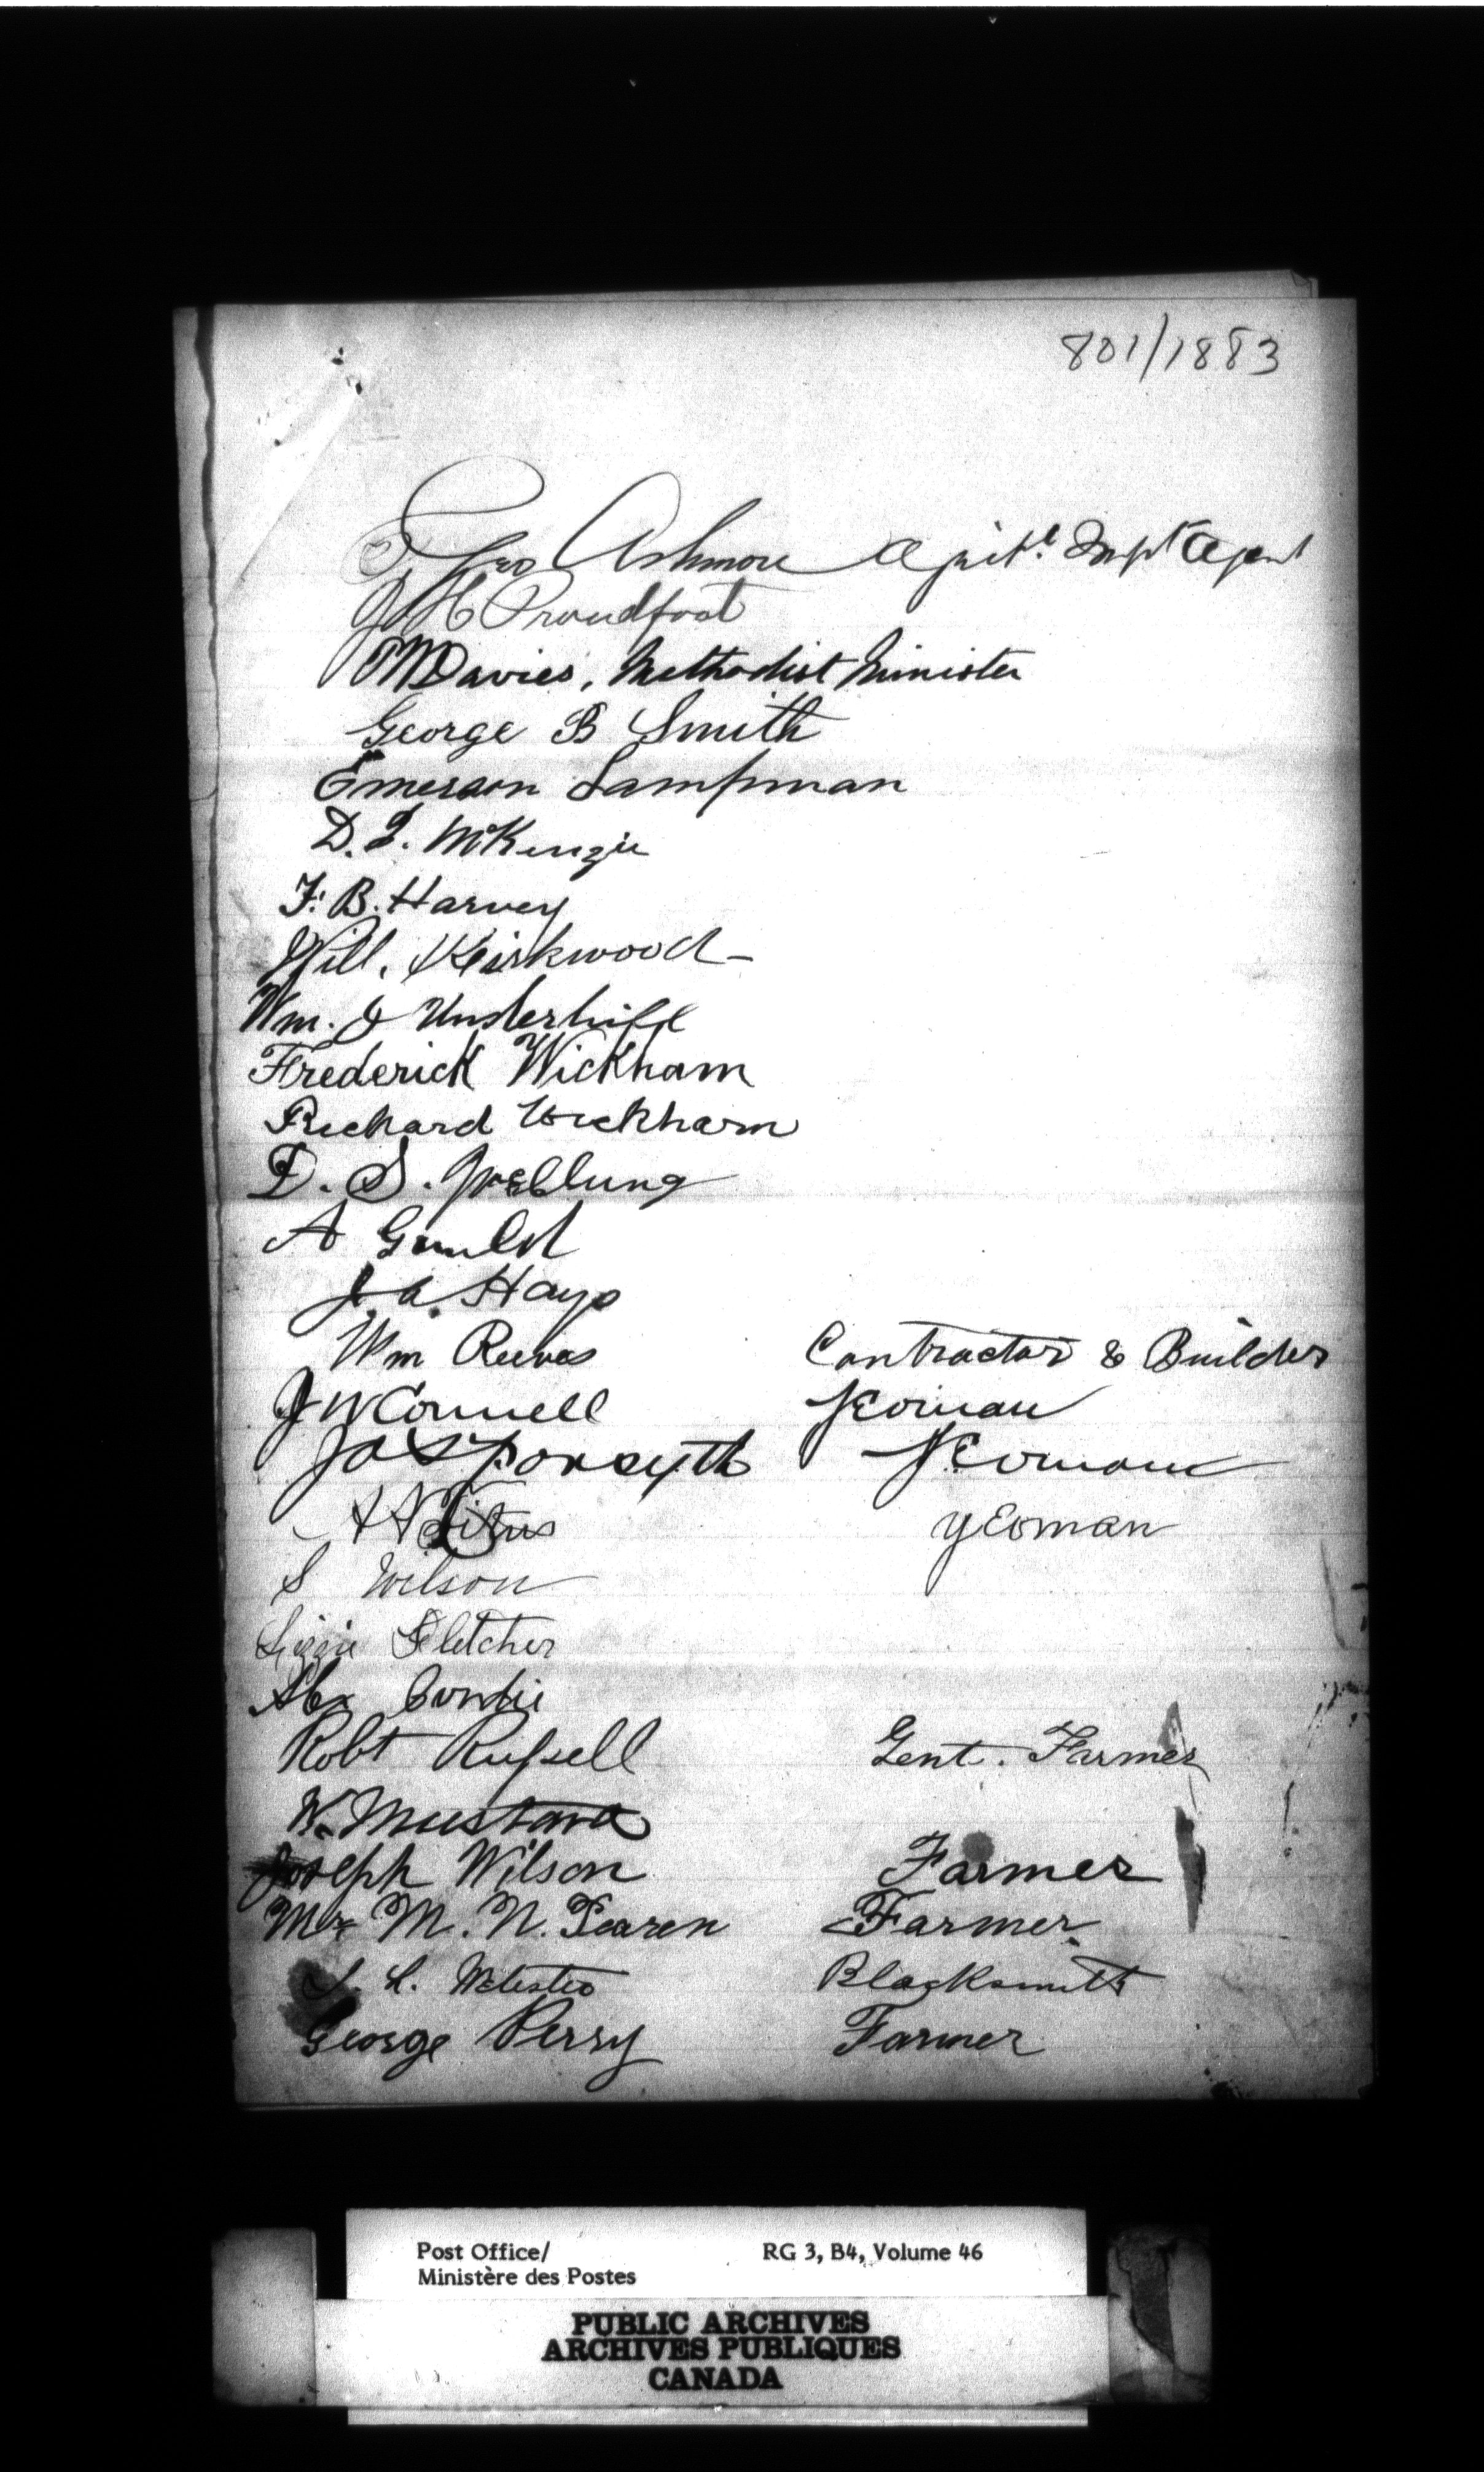 801/1883
Geo Ashmore Agritl. Impt Agent
J H Proudfoot
T M Davies, Methodist Minister
George B Smith
Emerson Lampman
D. McKenzie
F. B. Harvey
Will. Keirkwood
Wm. J Underhill
Frederick Wickham
Richard Wickham
D. S.
A Gauld
J. A. Hays
Wm Reeves Contractor & Builder
J W Connell Yeoman
Jas Forsyth Yeoman
Titus Yeoman
S Wilson
Lizzie Fletcher
Alex
Robt Russell Gent. Farmer
W. Mustard
Joseph Wilson Farmer
Mr M. N. Pearen Farmer
Webster Blacksmith
George Perry Farmer
Post Office/ RG 3, B4, Volume 46
Ministère des Postes
PUBLIC ARCHIVES
ARCHIVES PUBLIQUES
CANADA